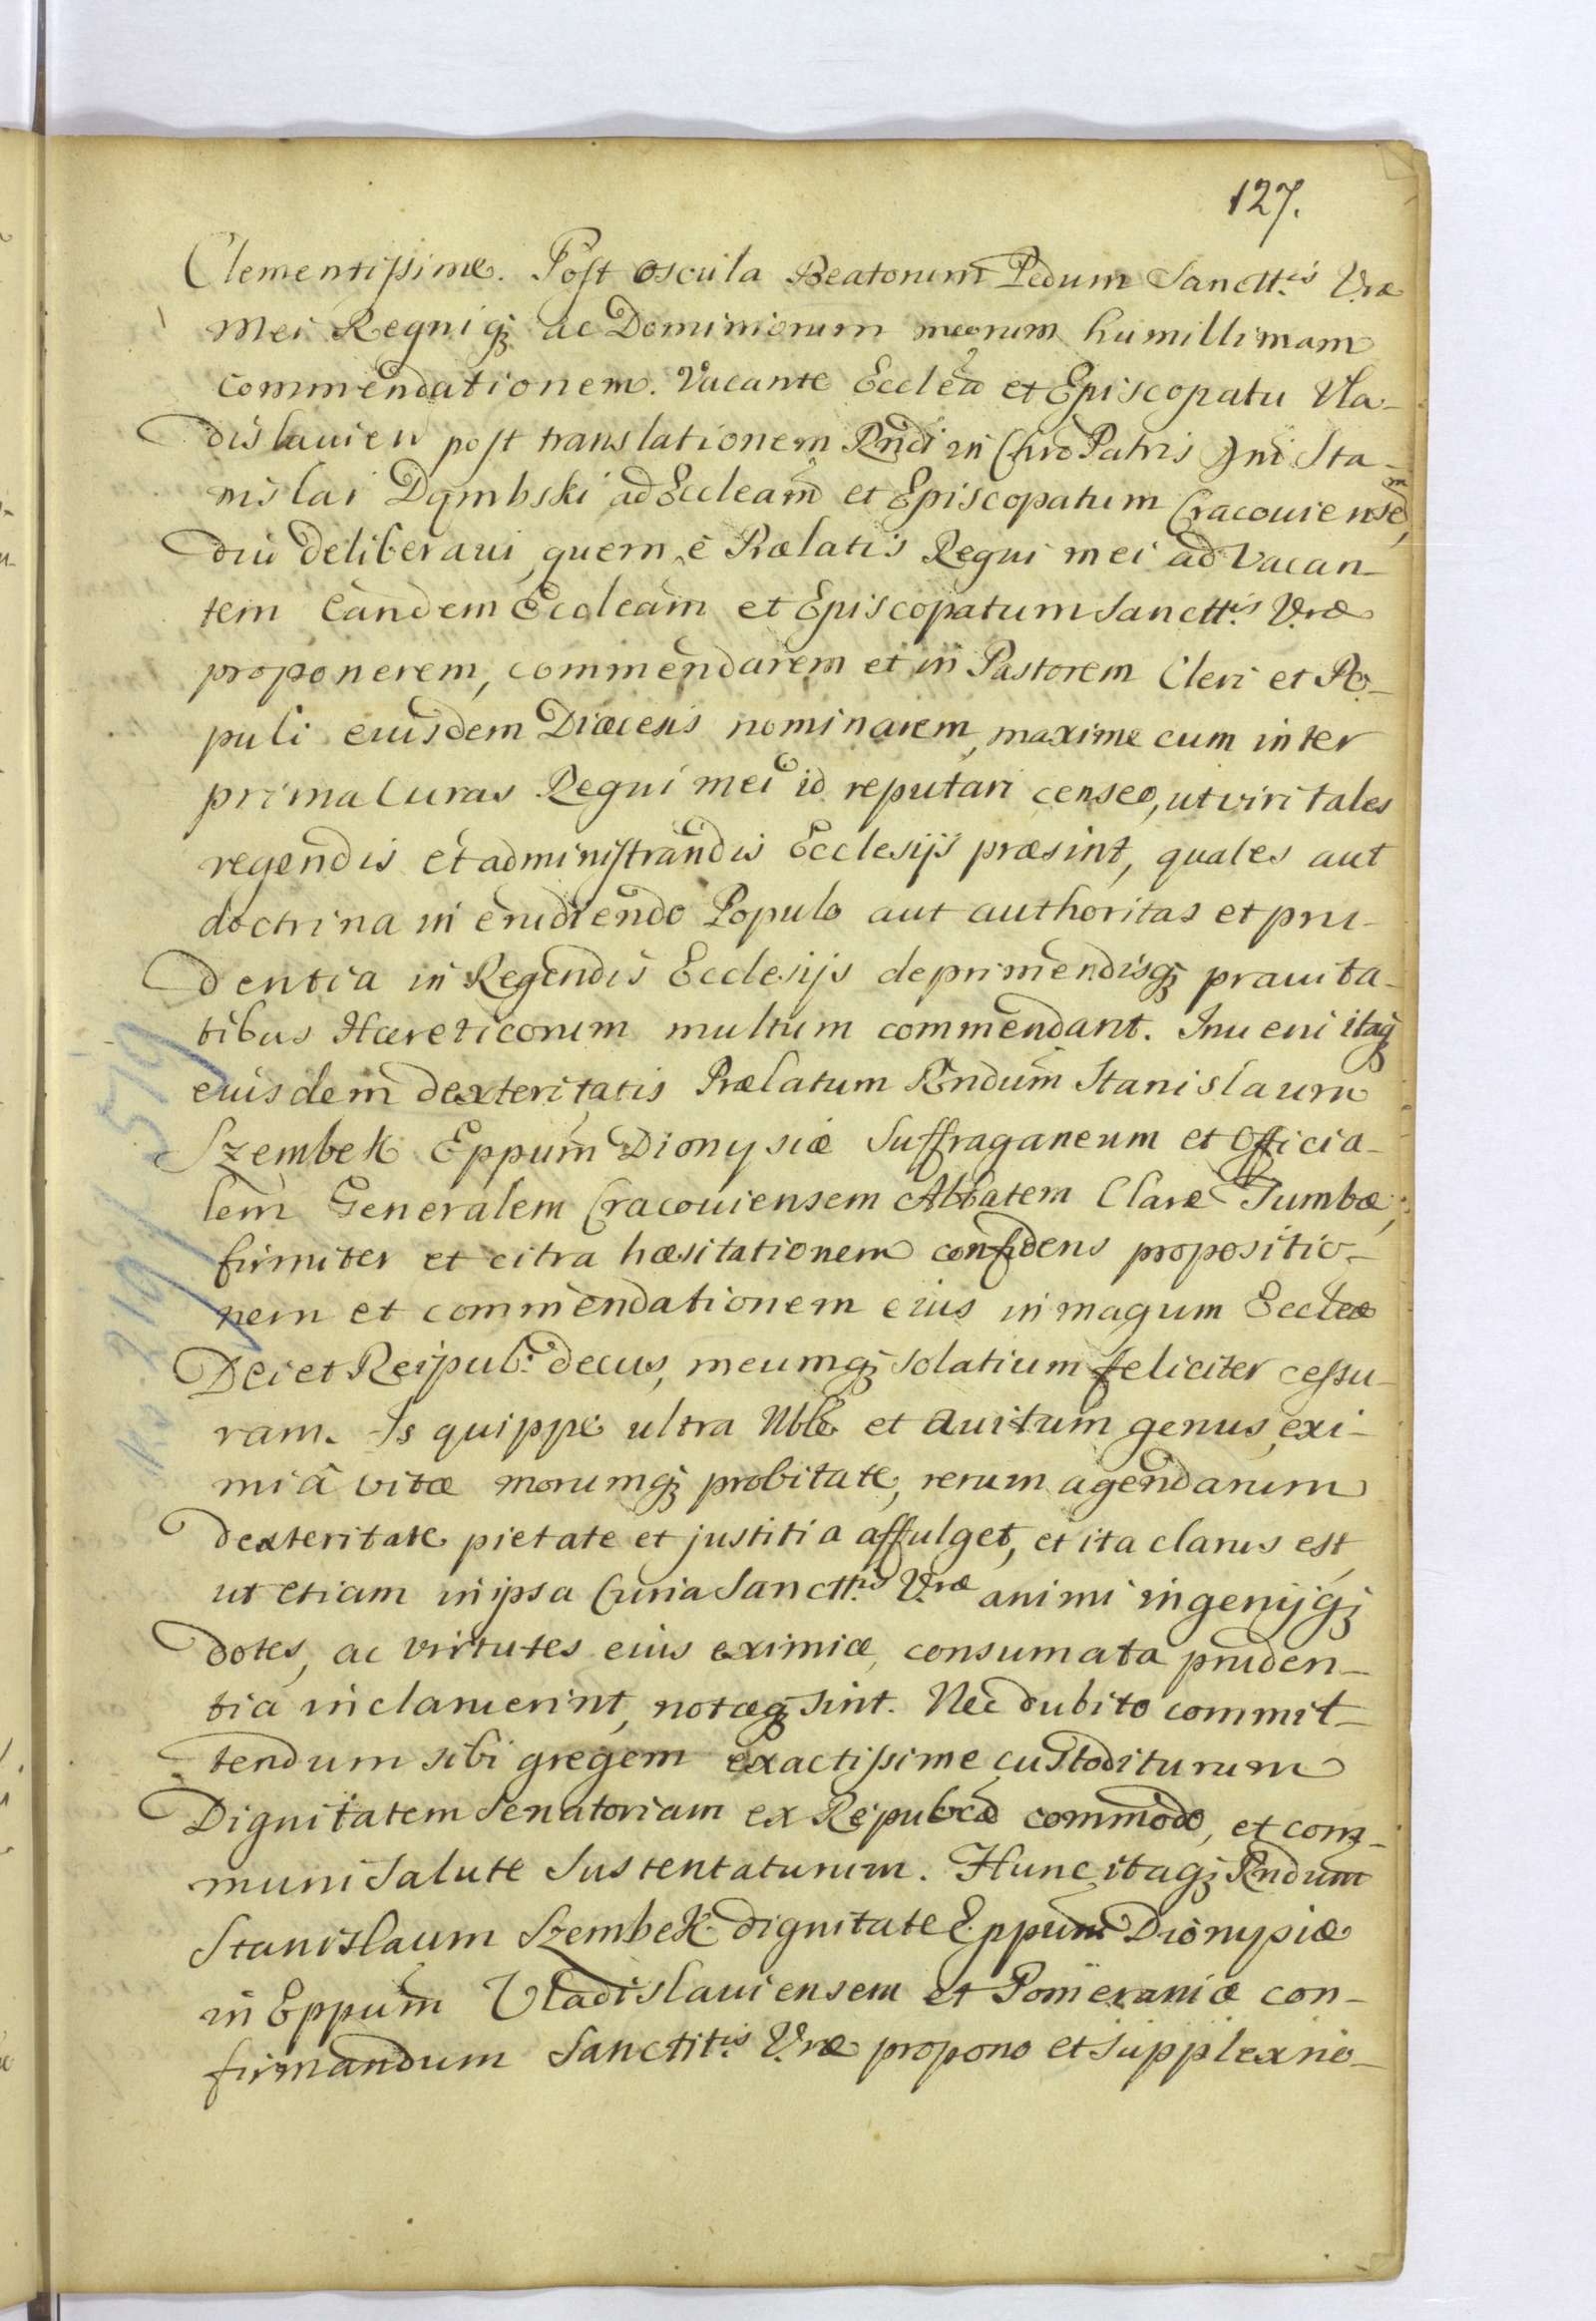 127.
Clementissime. Post oscula Beatorum Pedum Sanctt.is Vræ
Mei Regniq; ac Dominiorum meorum humillimam
commendationem. Vacante Ecclea et Episcopatu Vla-
dislauien post translationem Rndi in Chro Patris Dni Sta-
nislai Dąmbski ad Eccleam et Episcopatum Cracouiensem,
diu deliberaui, quem è Prælatis Regni mei ad Vacan-
tem eandem Eccleam et Episcopatum Sanctt.is Vræ
proponerem, commendarem et in Pastorem Cleri et Po-
puli eiusdem Diæcesis nominarem, maxime cum inter
prima Curas Regni mei id reputari censeo, ut viri tales
regendis et administrandis Ecclesijs præsint, quales aut
doctrina in erudiendo Populo aut authoritas et pru-
dentia in Regendis Ecclesijs deprimendisq; prauita-
tibus Hæreticorum multum commendant. Inueni itaq;
eiusdem dexteritatis Prælatum Rndum Stanislaum
Szembek Eppum Dionysiæ Suffraganeum et Officia-
lem Generalem Cracouiensem Abbatem Claræ Tumbæ,
firmiter et citra hæsitationem confidens propositio-
nem et commendationem eius in magum Eccleæ
Dei et Reipub: decus, meumq; solatium feliciter cessu-
ram. Is quippe ultra Nble et auitum genus, exi-
miâ vitæ morumq; probitate, rerum agendarum
dexteritate pietate et justitia affulget, et ita clarus est,
ut etiam in ipsa Curia Sanctt.is Vræ animi ingenijq;
dotes, ac virtutes eius eximiæ, consumata pruden-
tia inclaruerint, notæq; sint. Nec dubito commit-
tendum sibi gregem exactissime custoditurum
Dignitatem Senatoriam ex Reipubcæ commodo, et com-
muni salute sustentaturum. Hunc itaq; Rndum
Stanislaum Szembek dignitate Eppum Dionysiæ
in Eppum Vladislauiensem et Pomeraniæ con-
firmandum Sanctit.is Vræ propono et supplex ro-